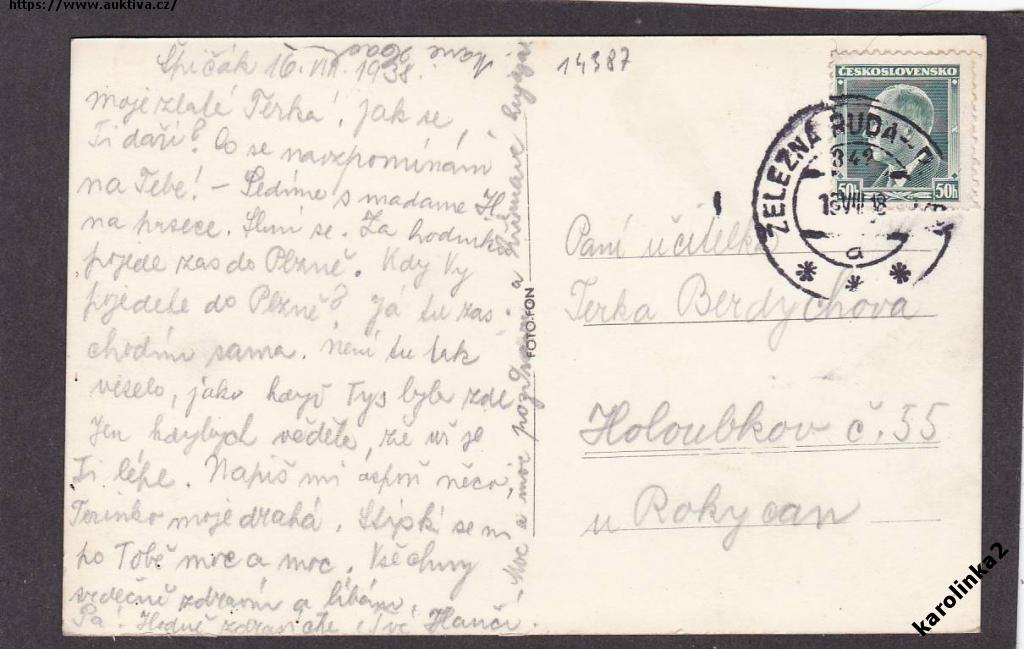 https://www.auktiva.cz/
Špičák 16. VIII. 1938.
14387
Moje zlatá Terka, jak se
Ti daří? Co se navzpomínám
na Tebe! – Sedíme s madame H
na prsece. Sluní se. Za hodinku
pojede zas do Plzně. Kdy Vy
pojedete do Plzně? Já tu zas
chodím sama. Není tu tak
veselo, jako když Tys byla zde
Jen kdybych věděla, že už je
Ti lépe. Napiš mi aspoň něco,
Terinko moje drahá. Stýská se mi
po Tobě moc a moc. Všechny
srdečně zdravím a líbám.
Pá! Hodně zdraví Tvá Hanči.
Moc a moc pozdravů a
FOTO-FON
ČESKOSLOVENSKO
50h 50h
ŽELEZNÁ RUDA
a
Paní učitelka
Terka Berdychova
Holoubkov č. 55
u Rokycan
karolinka2